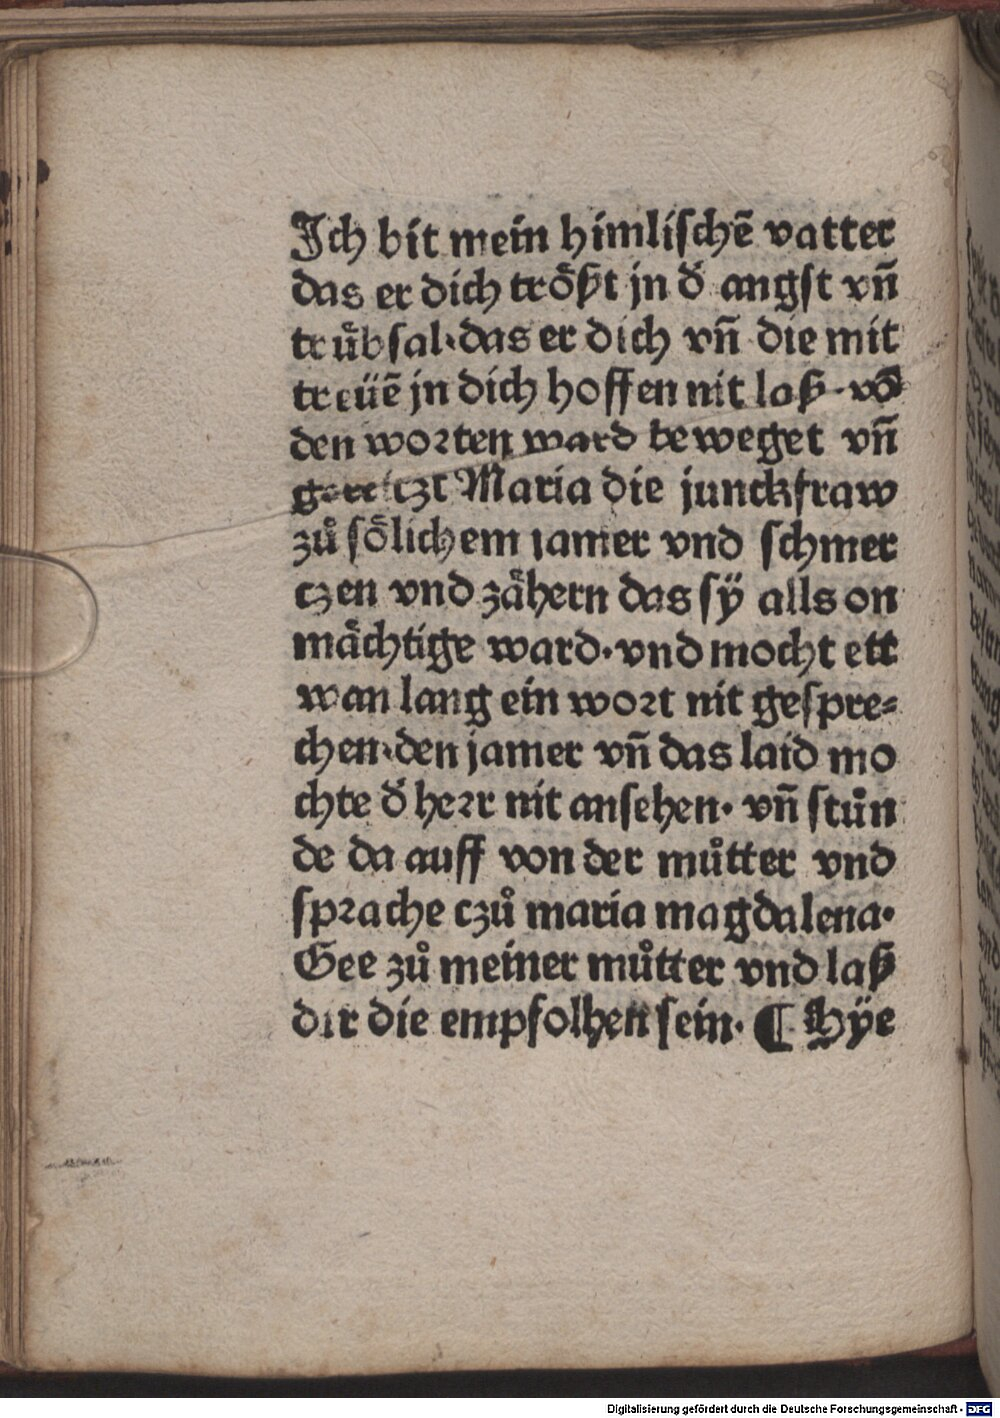 Ich bit mein himlischē vatter
das er dich trőßt jn ď angst vñ
trůbsal·das er dich vñ die mit
treüē jn dich hoffen nit laß·vō
den worten ward beweget vñ
gereitzt Maria die junckfraw
zů sőlichem iamer vnd schmer
czen vnd zåhern das sÿ alls on
måchtige ward·vnd mocht ett
wan lang ein wort nit gespre⸗
chen·den jamer vñ das laid mo
chte ď herr nit ansehen·vñ stůn
de da auff von der můtter vnd
sprache czů maria magdalena·
Gee zů meiner můtter vnd laß
dir die empfolhen sein·¶ Hÿe
Digitalisierung gefördert durch die Deutsche Forschungsgemeinschaft - DFG